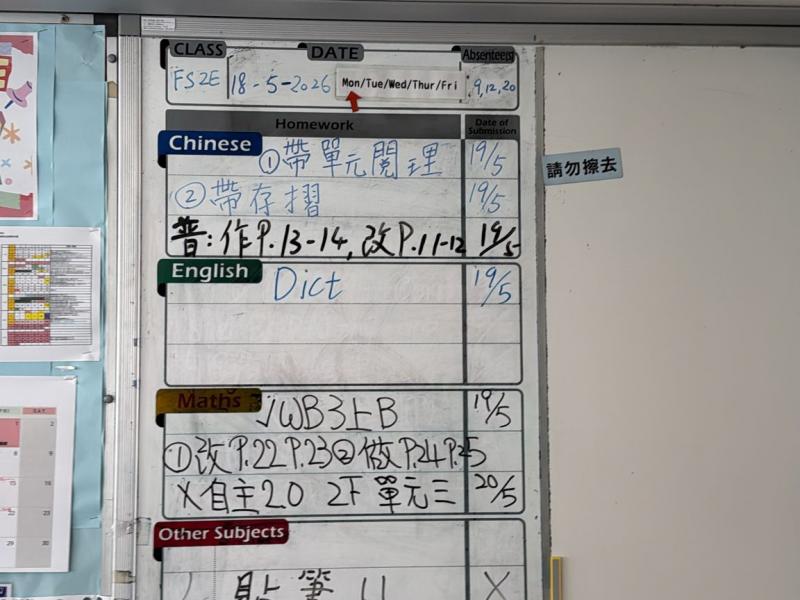 CLASS DATE Absentee(s)
FS2E 18-5-2026 Mon/Tue/Wed/Thur/Fri 9,12,20
Homework Date of Submission
Chinese ①帶單元閱理 19/5
②帶存摺 19/5
普:作P.13-14,改P.11-12 19/5
請勿擦去
English Dict 19/5
Maths JWB3上B 19/5
①改P.22P.23②做P.24P.25
X自主20 2下單元三 20/5
Other Subjects